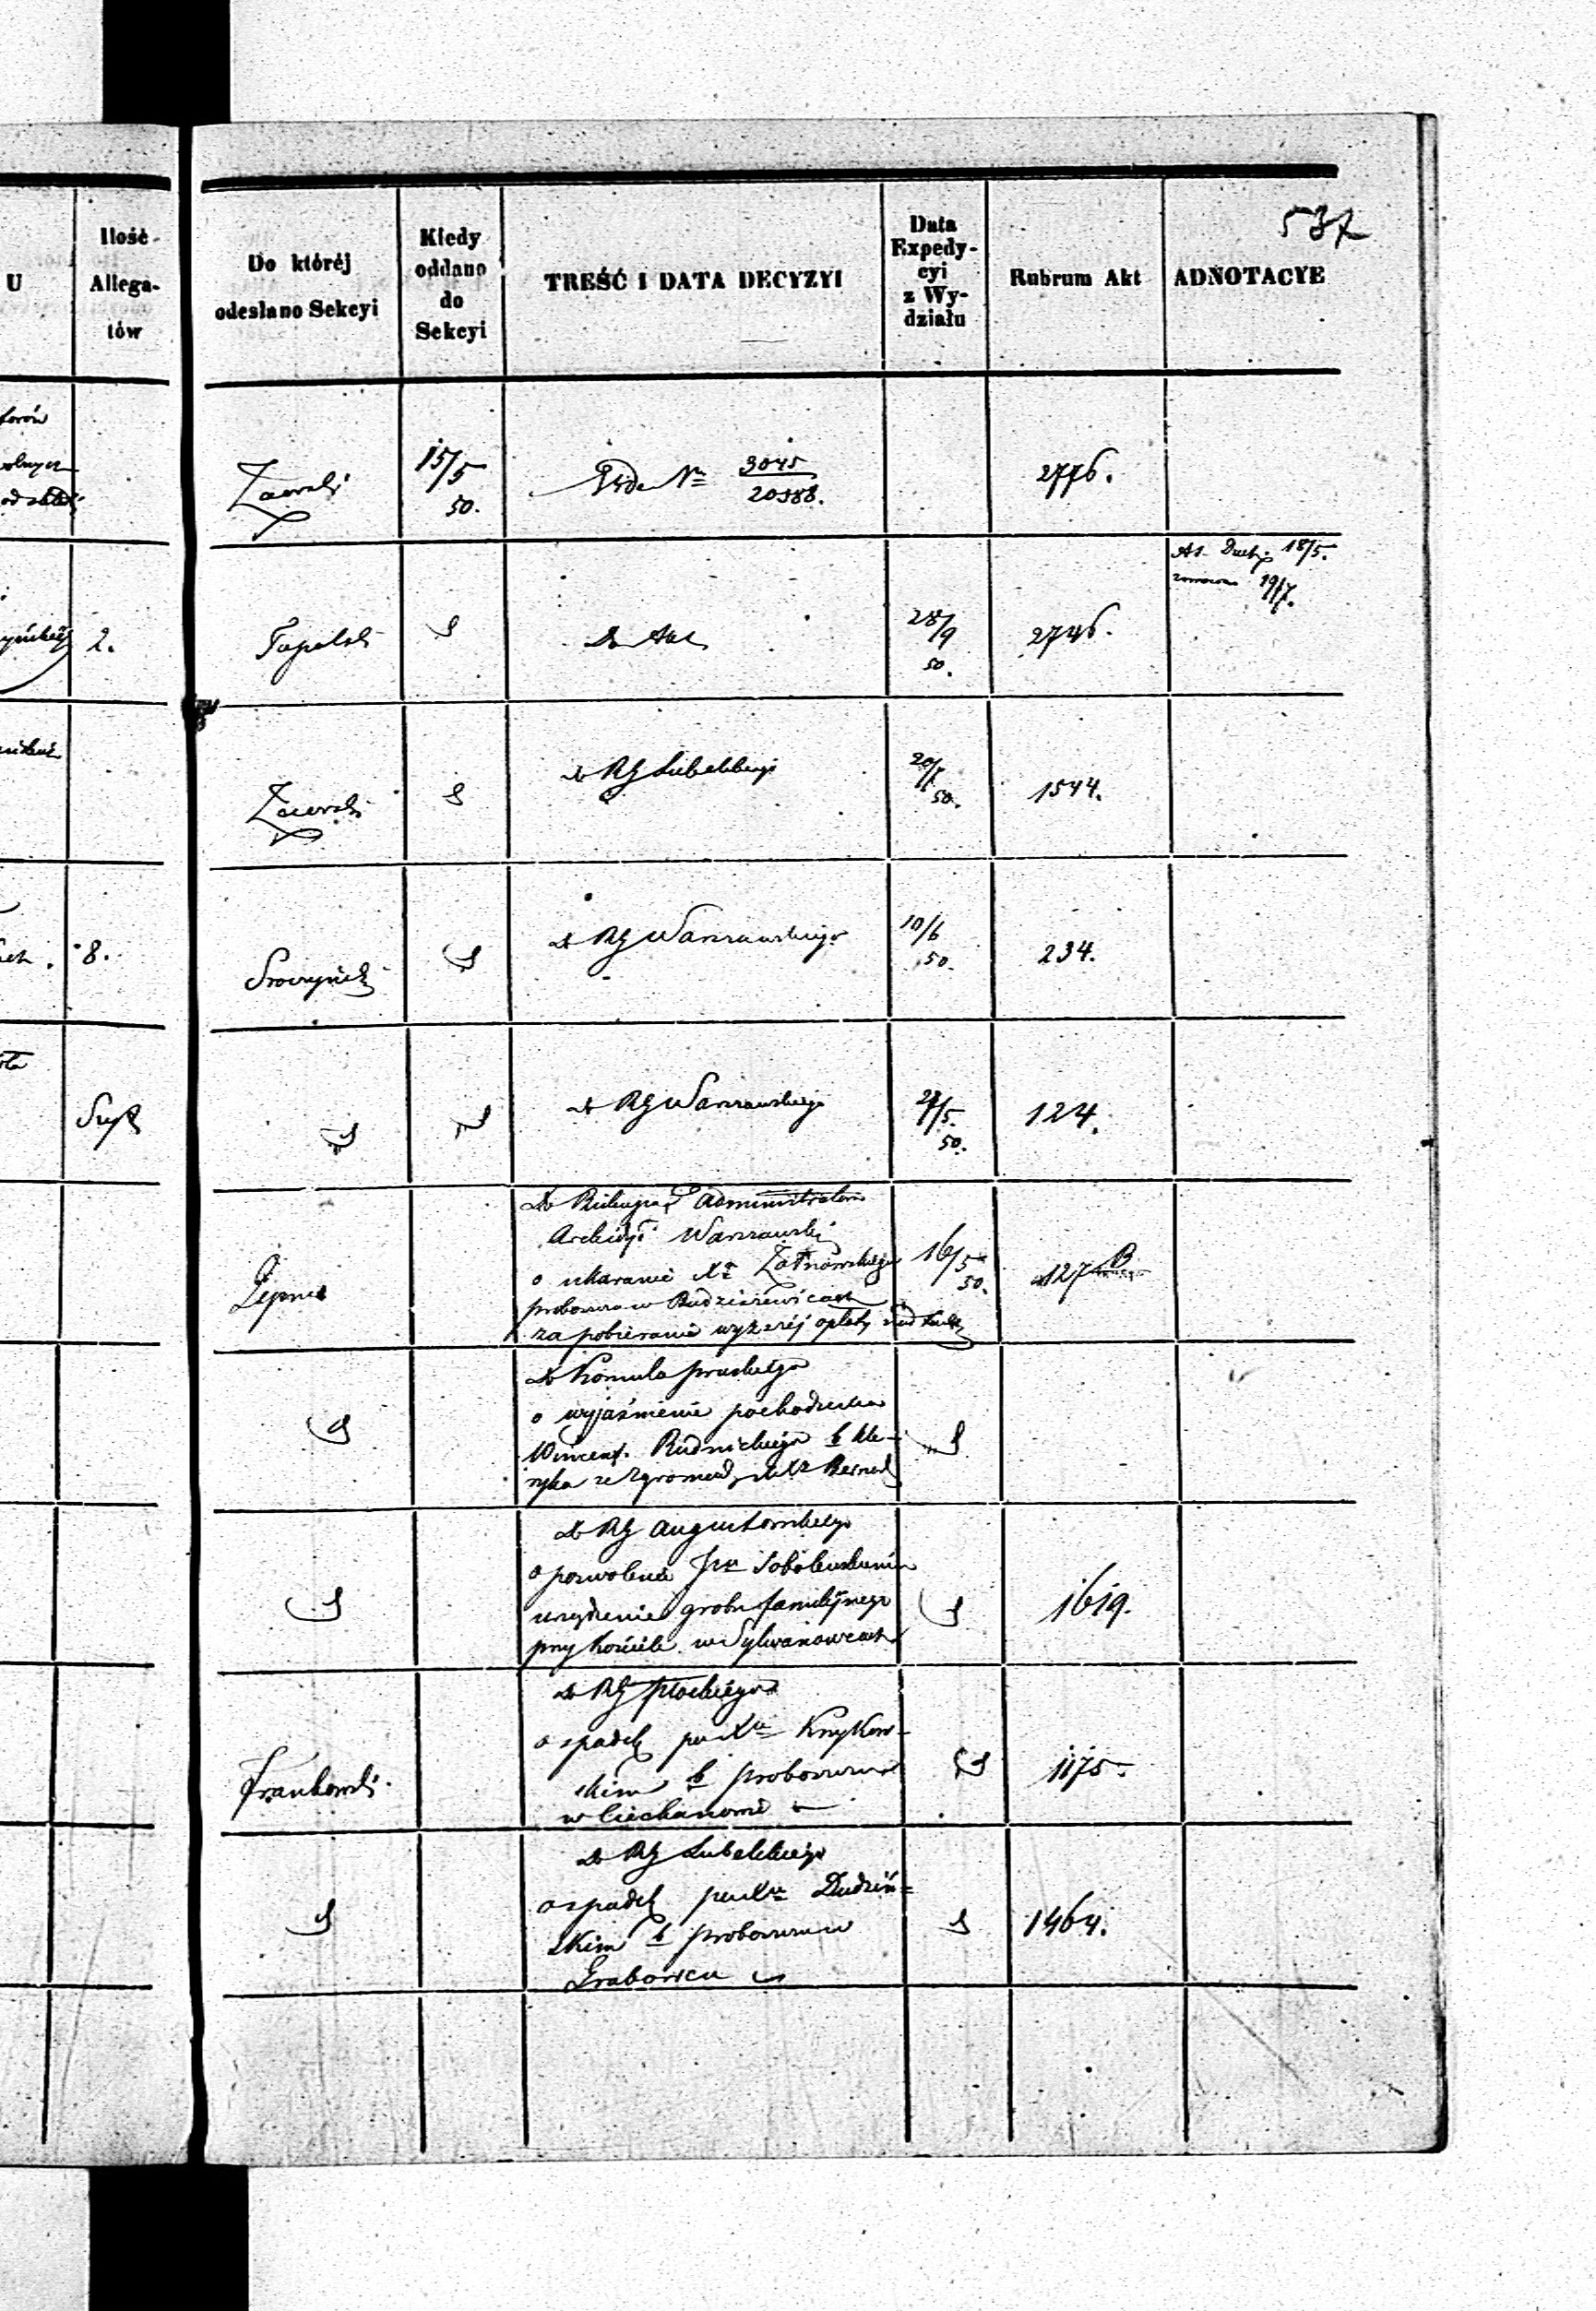 537
U
Ilość
Allega-
tów
Do któréj
odesłano Sekcyi
Kiedy
oddano
do
Sekcyi
TREŚĆ I DATA DECYZYI
Data
Expedy-
cyi
z Wy-
działu
Rubrum Akt
ADNOTACYE
15/5
50.
Vide Nr 3045
20588.
2776.
18/5.
19/7.
2.
Topolski
Do Akt
28/9
50.
2746.
do RG Lubelskiego
20/5
50.
1544.
8.
do RG Warszawskiego
10/6
50.
234.
do RG Warszawskiego
27/5.
50.
124.
Do Biskupa Administratora
Archidy. Warszawskiej
o ukaranie Xa
proboszcza w Budziszewicach
za pobieranie wyższej opłaty
16/5
50.
127 B
do Konsula pruskiego
o wyjaśnienie pochodzenia
Wincent. Rudnickiego b. kle-
ryka ze Zgromad. XX Bernard
do RG Augustowskiego
o pozwolenie Sobolewskiemu
urządzenie grobu familijnego
przy kościele w Sylwanowcach
1619.
Frankowski
do RG Płockiego
o spadek po Xu Krzykow-
skim b. proboszczu
w Ciechanowie
1175.
do RG Lubelskiego
o spadek po Xu Dudziń-
skim b. proboszczu w
Grabowcu
1464.